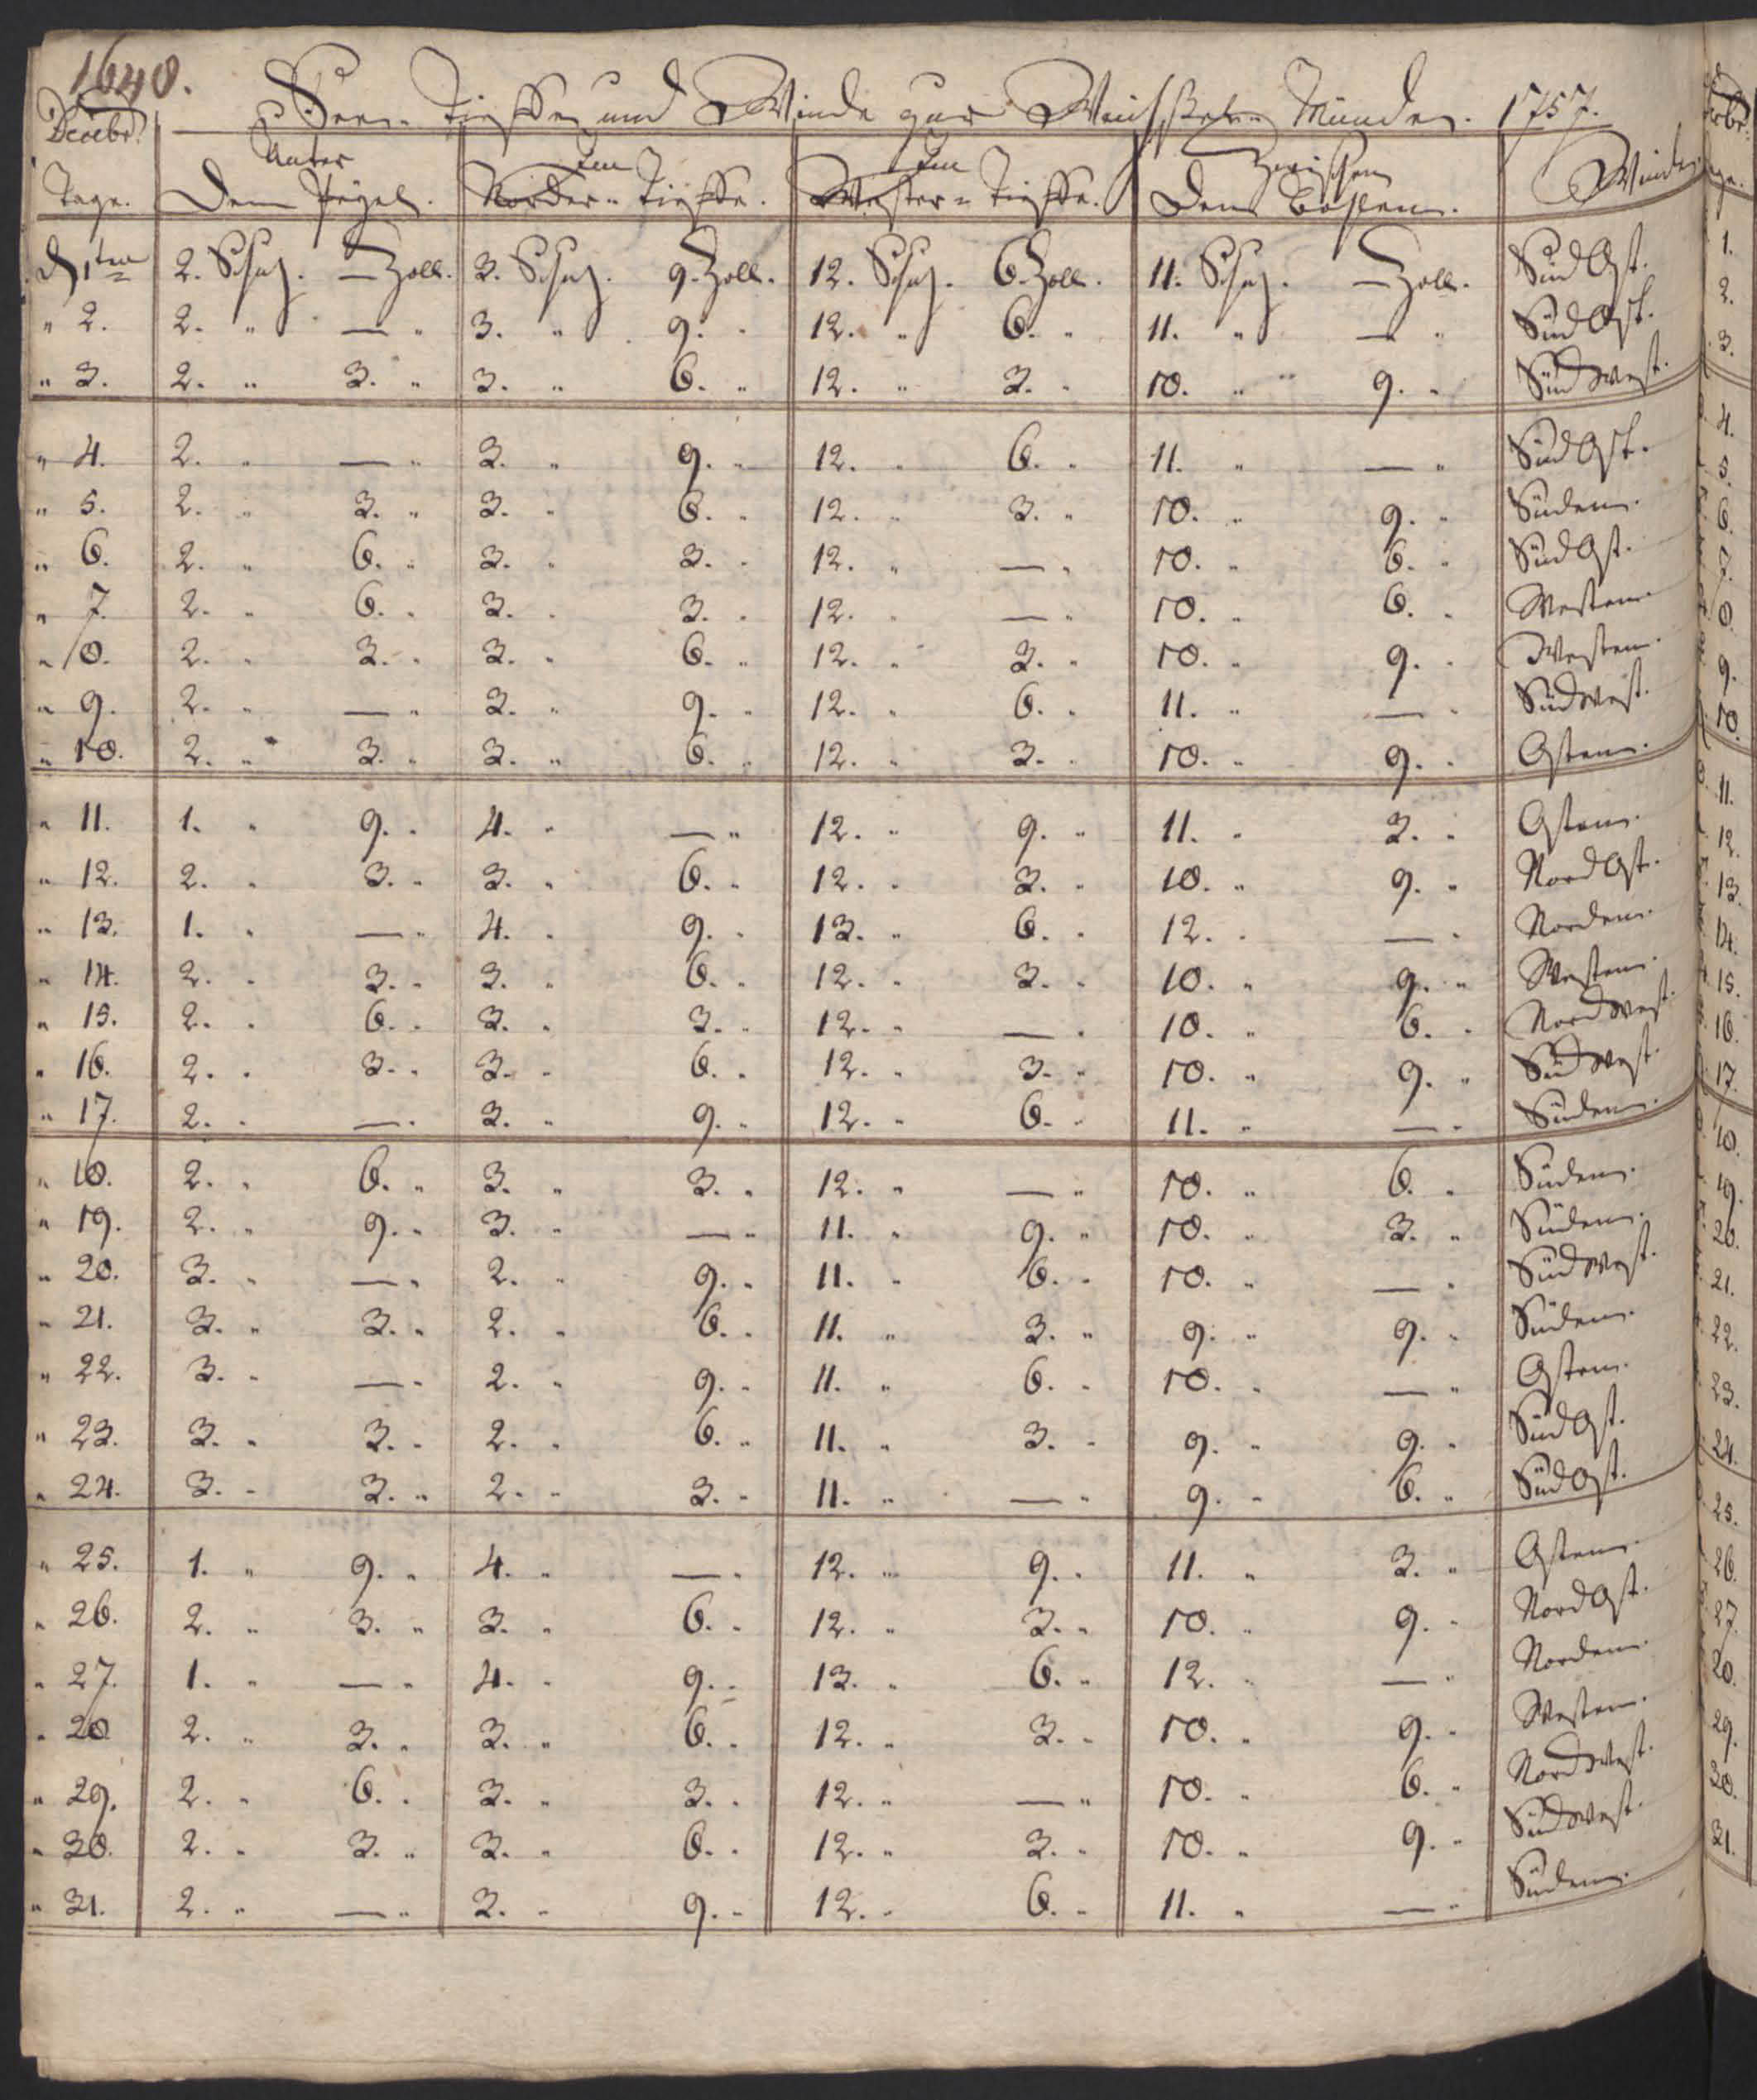 1648.
See- Tieffen und Winde zur Weichssel- Münde. 1757.
Decebr. Unter im im Zwischen Winde.
Tage. Dem Pegel. Norder- Tieffe. Wester- Tieffe. Den Bohlen.
D 1ten 2. Schu. — Zoll. 3. Schu. 9. Zoll. 12. Schu. 6. Zoll. 11. Schu. — Zoll. Süd Ost.
" 2. 2. " — " 3. " 9. " 12. " 6. " 11. " — " Süd Ost.
" 3. 2. " 3. " 3. " 6. " 12. " 3. " 10. " 9. " Süd West.
" 4. 2. " — " 3. " 9. " 12. " 6. " 11. " — " Süd Ost.
" 5. 2. " 3. " 3. " 6. " 12. " 3. " 10. " 9. " Süden.
" 6. 2. " 6. " 3. " 3. " 12. " — " 10. " 6. " Süd Ost.
" 7. 2. " 6. " 3. " 3. " 12. " — " 10. " 6. " Westen.
" 8. 2. " 3. " 3. " 6. " 12. " 3. " 10. " 9. " Westen.
" 9. 2. " — " 3. " 9. " 12. " 6. " 11. " — " Süd West.
" 10. 2. " 3. " 3. " 6. " 12. " 3. " 10. " 9. " Osten.
" 11. 1. " 9. " 4. " — " 12. " 9. " 11. " 3. " Osten.
" 12. 2. " 3. " 3. " 6. " 12. " 3. " 10. " 9. " Nord Ost.
" 13. 1. " — " 4. " 9. " 13. " 6. " 12. " — " Norden.
" 14. 2. " 3. " 3. " 6. " 12. " 3. " 10. " 9. " Westen.
" 15. 2. " 6. " 3. " 3. " 12. " — " 10. " 6. " Nord West.
" 16. 2. " 3. " 3. " 6. " 12. " 3. " 10. " 9. " Süd West.
" 17. 2. " — " 3. " 9. " 12. " 6. " 11. " — " Süden.
" 18. 2. " 6. " 3. " 3. " 12. " — " 10. " 6. " Süden.
" 19. 2. " 9. " 3. " — " 11. " 9. " 10. " 3. " Süden.
" 20. 3. " — " 2. " 9. " 11. " 6. " 10. " — " Süd West.
" 21. 3. " 3. " 2. " 6. " 11. " 3. " 9. " 9. " Süden.
" 22. 3. " — " 2. " 9. " 11. " 6. " 10. " — " Osten.
" 23. 3. " 3. " 2. " 6. " 11. " 3. " 9. " 9. " Süd Ost.
" 24. 3. " 3. " 2. " 3. " 11. " — " 9. " 6. " Süd Ost.
" 25. 1. " 9. " 4. " — " 12. " 9. " 11. " 3. " Osten.
" 26. 2. " 3. " 3. " 6. " 12. " 3. " 10. " 9. " Nord Ost.
" 27. 1. " — " 4. " 9. " 13. " 6. " 12. " — " Norden.
" 28. 2. " 3. " 3. " 6. " 12. " 3. " 10. " 9. " Westen.
" 29. 2. " 6. " 3. " 3. " 12. " — " 10. " 6. " Nord West.
" 30. 2. " 3. " 3. " 6. " 12. " 3. " 10. " 9. " Süd West.
" 31. 2. " — " 3. " 9. " 12. " 6. " 11. " — " Süden.
1.
2.
3.
4.
5.
6.
7.
8.
9.
10.
11.
12.
13.
14.
15.
16.
17.
18.
19.
20.
21.
22.
23.
24.
25.
26.
27.
28.
29.
30.
31.